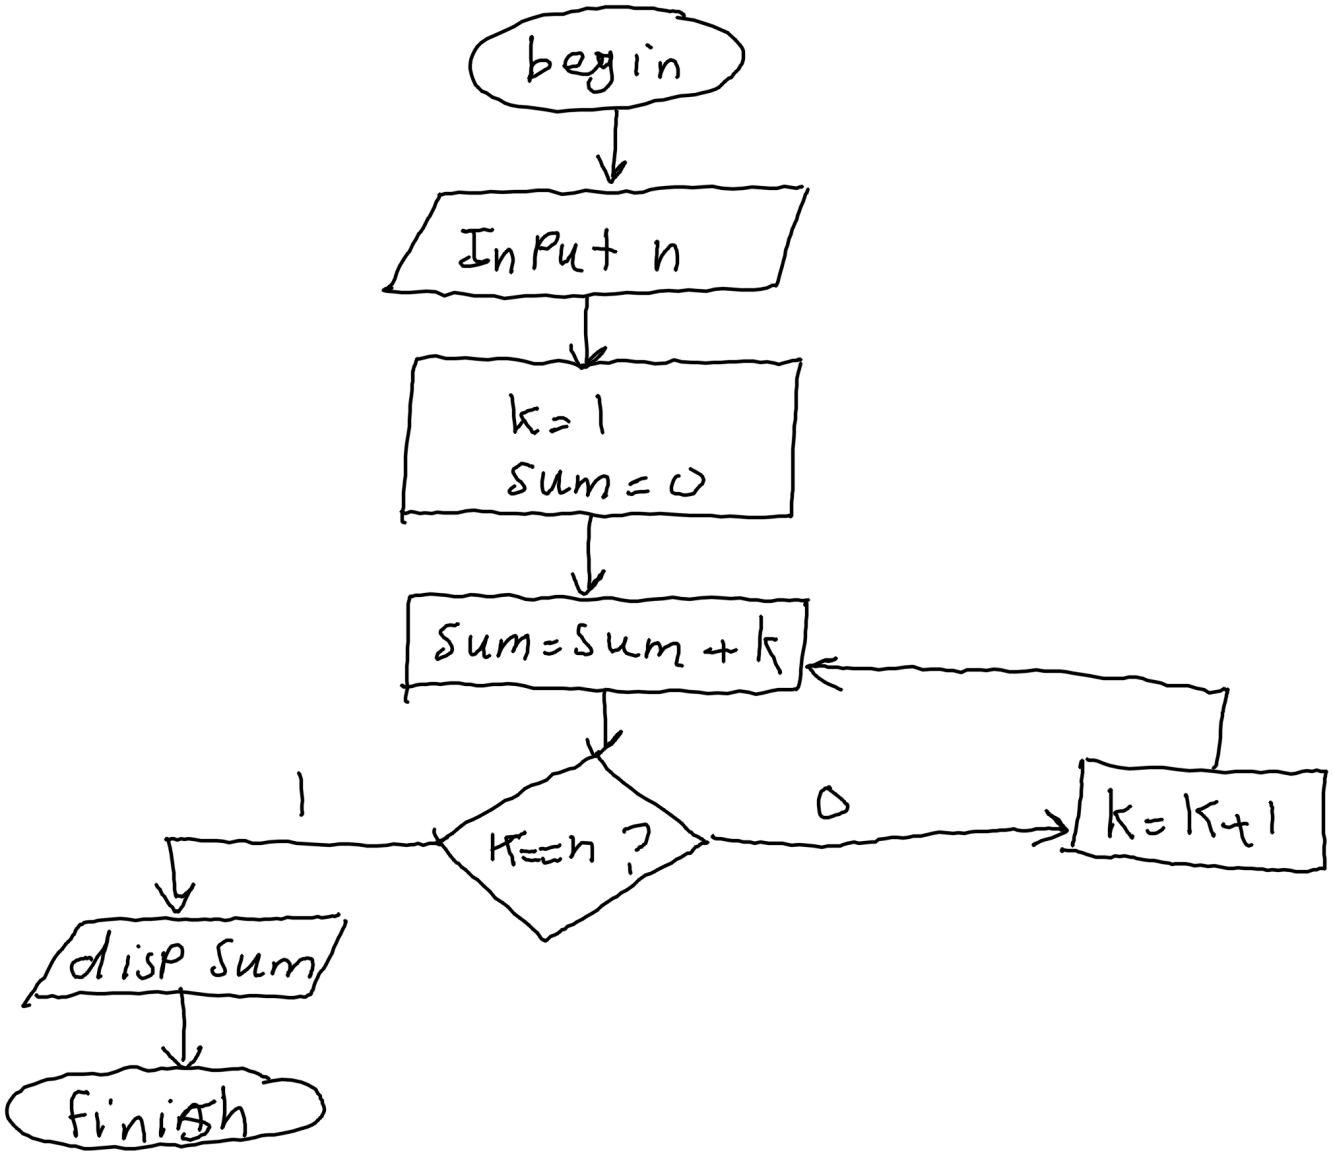 begin
Input n
k=1
sum=0
sum=sum+k
1
0
k==n ?
k=k+1
disp sum
finish